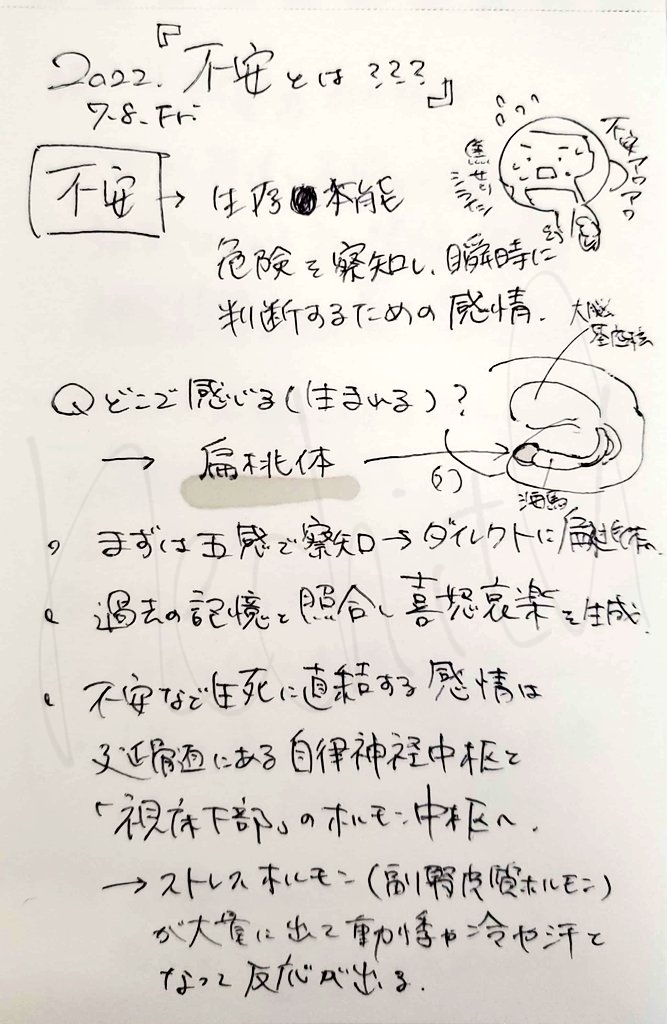 2022.『不安とは???』
7.8.Fri
不安 → 生存本能
危険を察知し、瞬時に
判断するための感情.
不安アワアワ
焦せり
大脳
基底核
Q どこで感じる(生まれる)?
→ 扁桃体
海馬
まずは五感で察知→ダイレクトに扁桃体へ
過去の記憶と照合し喜怒哀楽を生成.
不安など生死に直結する感情は
延髄にある自律神経中枢と
「視床下部」のホルモン中枢へ.
→ストレスホルモン(副腎皮質ホルモン)
が大量に出て動悸や冷や汗と
なって反応が出る.